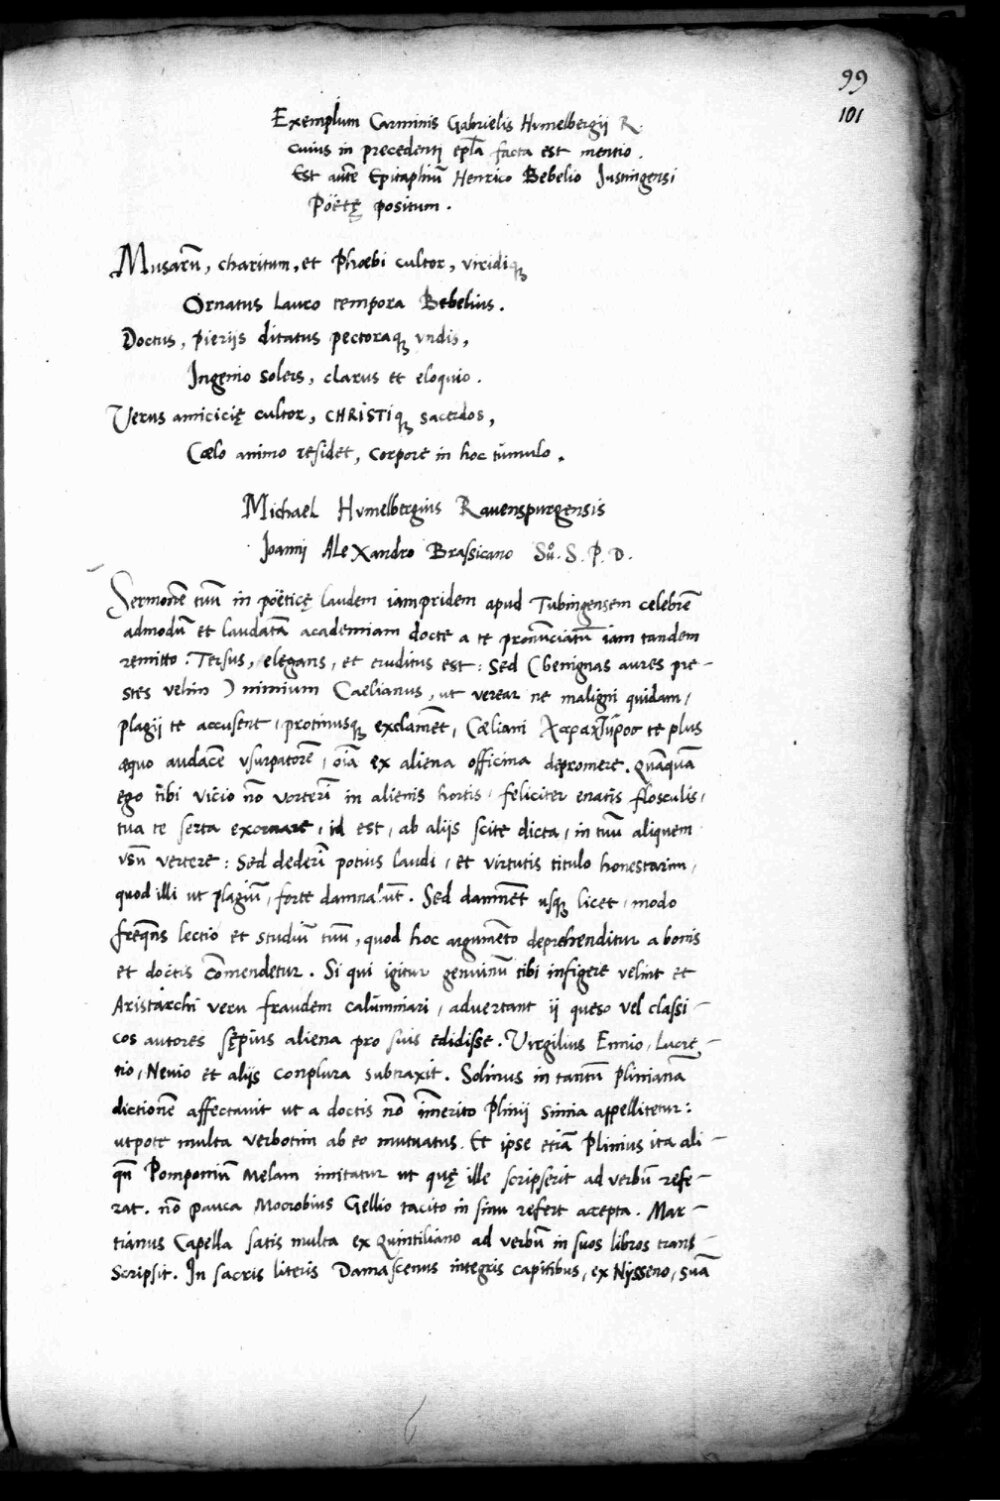 99
101
Exemplum Carminis Gabrielis Humelbergij R.
cuius in precedenti epl̃a facta est mentio.
Est aũte Epitaphiũ Henrico Bebelio Justingensi
Pöëtę positum.
Musarũ, charitum, et Phœbi cultor, viridiqꝫ
Ornatus lauro tempora Bebelius.
Doctus, pierijs ditatus pectoraqꝫ vndis,
Ingenio solers, clarus et eloquio.
Verus amicicię cultor, CHRISTIqꝫ sacerdos,
Cœlo animo residet, corpore in hoc tumulo.
Michael Humelbergius Ravenspurgensis
Joanni Alexandro Brassicano Suo. S. P. D.
Sermonẽ tuũ in pöëticę laudem iampridem apud Tubingensem celebrẽ
admodũ et laudatã academiam docte a te pronũciatũ iam tandem
remitto: Tersus, elegans, et eruditus est: Sed (benignas aures pre-
stes velim) nimium Caelianus, ut verear ne maligni quidam,
plagij te accusent, protinusqꝫ exclamẽt, Cœliani χαρακτῆρος te plus
æquo audacẽ vsurpatorẽ, oĩa ex aliena officina depromere. Quãquã
ego tibi vicio nõ verterĩ in alienis hortis, feliciter enatis flosculis,
tua te serta exornare, id est, ab alijs scite dicta, in tuũ aliquem
vsũ vertere: Sed dederĩ potius laudi, et virtutis titulo honestarim,
quod illi ut plagiũ, forte damnarũt. Sed damnẽt usqꝫ licet, modo
freqũs lectio et studiũ tuũ, quod hoc argumẽto deprehenditur a bonis
et doctis cõmendetur. Si qui igitur genuinũ tibi infigere velint et
Aristarchi veru fraudem calumniari, advertant ij queso vel classi-
cos autores sępius aliena pro suis edidisse. Virgilius Ennio, Lucre-
tio, Nevio et alijs conplura subtraxit. Solinus in tantũ Plinianã
dictionẽ affectavit ut a doctis nõ ĩmerito Plinij simia appellitetur:
utpote multa verbotim ab eo mutuatus. Et ipse etiã Plinius ita ali-
qñ Pomponiũ Melam imitatur ut quę ille scripserit ad verbũ refe-
rat. nõ pauca Macrobius Gellio tacito in sinu refert accepta. Mar-
tianus Capella satis multa ex Quintiliano ad verbũ in suos libros trans-
scripsit. In sacris literis Damascenus integris capitibus, ex Nysseno, suã